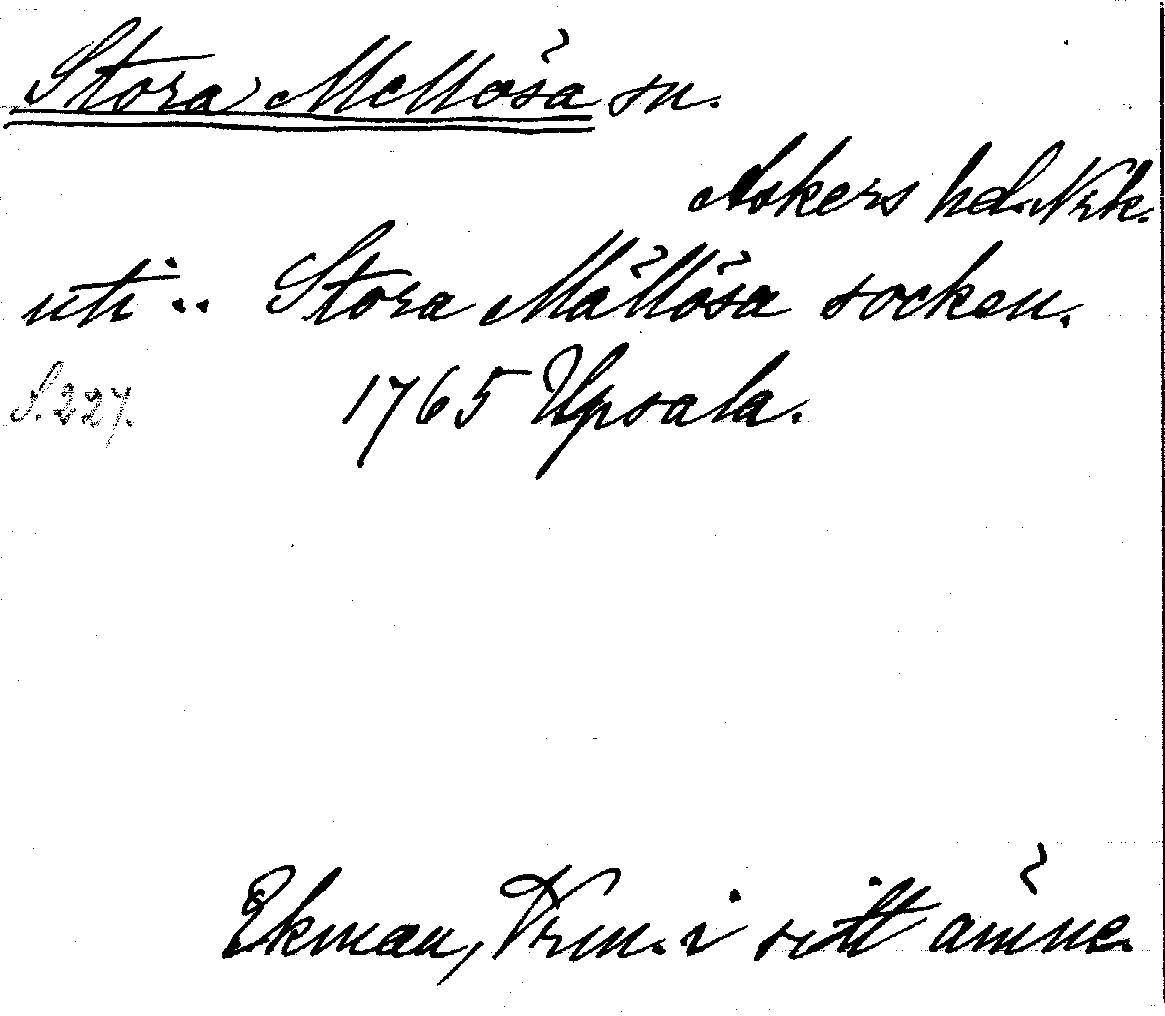 Stora Mellösa sn.
Askers hd. Nrk.
uti .. Stora Mällösa socken.
S. 227. 1765 Upsala.
Ekman, Vrm. i sitt ämne.